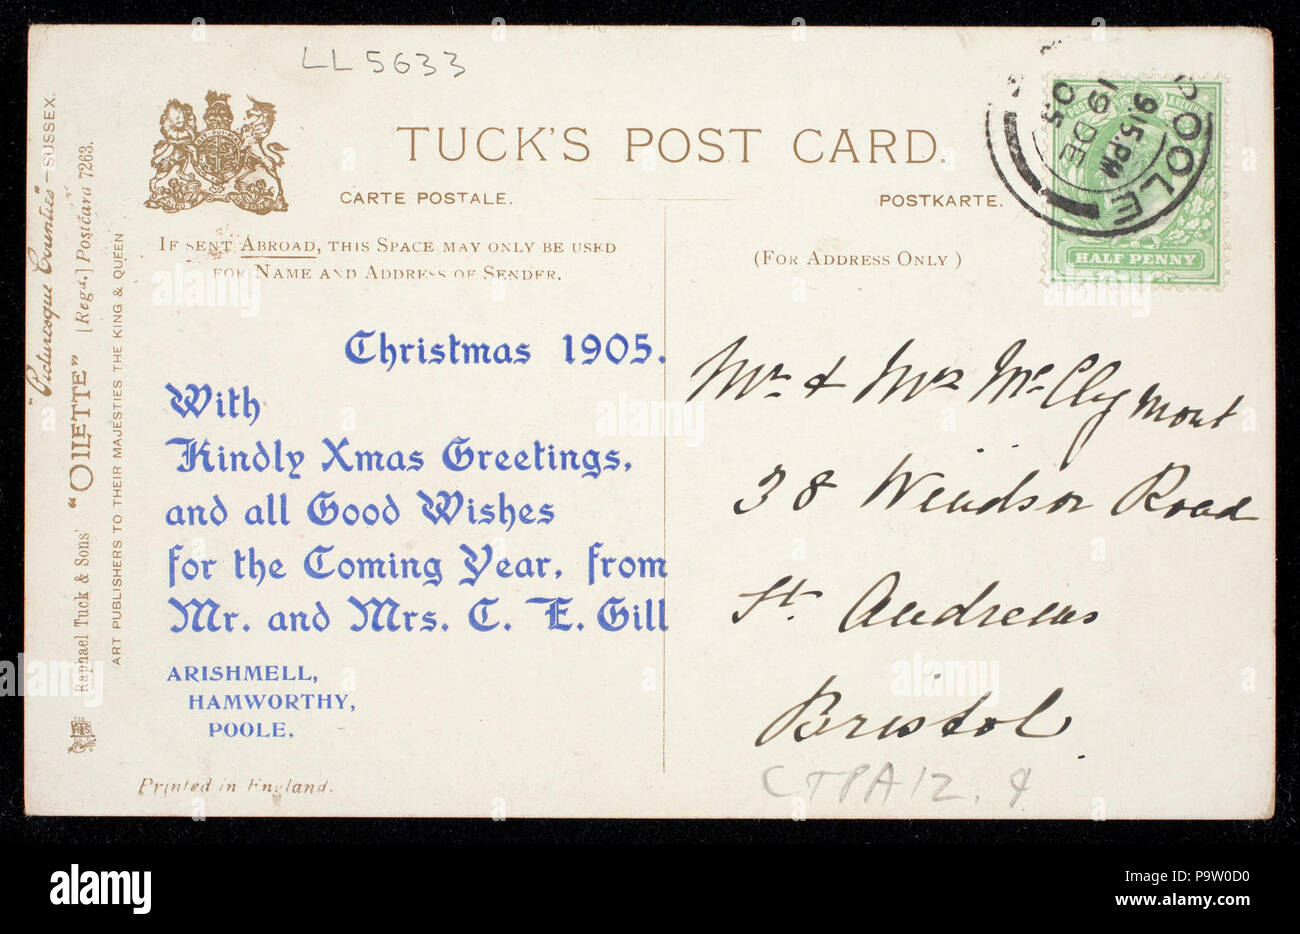 LL5633
TUCK'S POST CARD.
CARTE POSTALE.
POSTKARTE.
IF SENT ABROAD, THIS SPACE MAY ONLY BE USED
FOR NAME AND ADDRESS OF SENDER.
(FOR ADDRESS ONLY)
POOLE
9.15 PM
19 DE
05
HALF PENNY
Christmas 1905.
With
Kindly Xmas Greetings,
and all Good Wishes
for the Coming Year, from
Mr. and Mrs. C. E. Gill
ARISHMELL,
HAMWORTHY,
POOLE.
Mr & Mrs McClymont
38 Windsor Road
St. Andrews
Bristol
CTPA12.
Printed in England.
"Picturesque Counties"—SUSSEX.
Raphael Tuck & Sons' "OILETTE" [Regd.] Postcard 7263.
ART PUBLISHERS TO THEIR MAJESTIES THE KING & QUEEN
alamy
alamy stock photo
P9W0D0
www.alamy.com